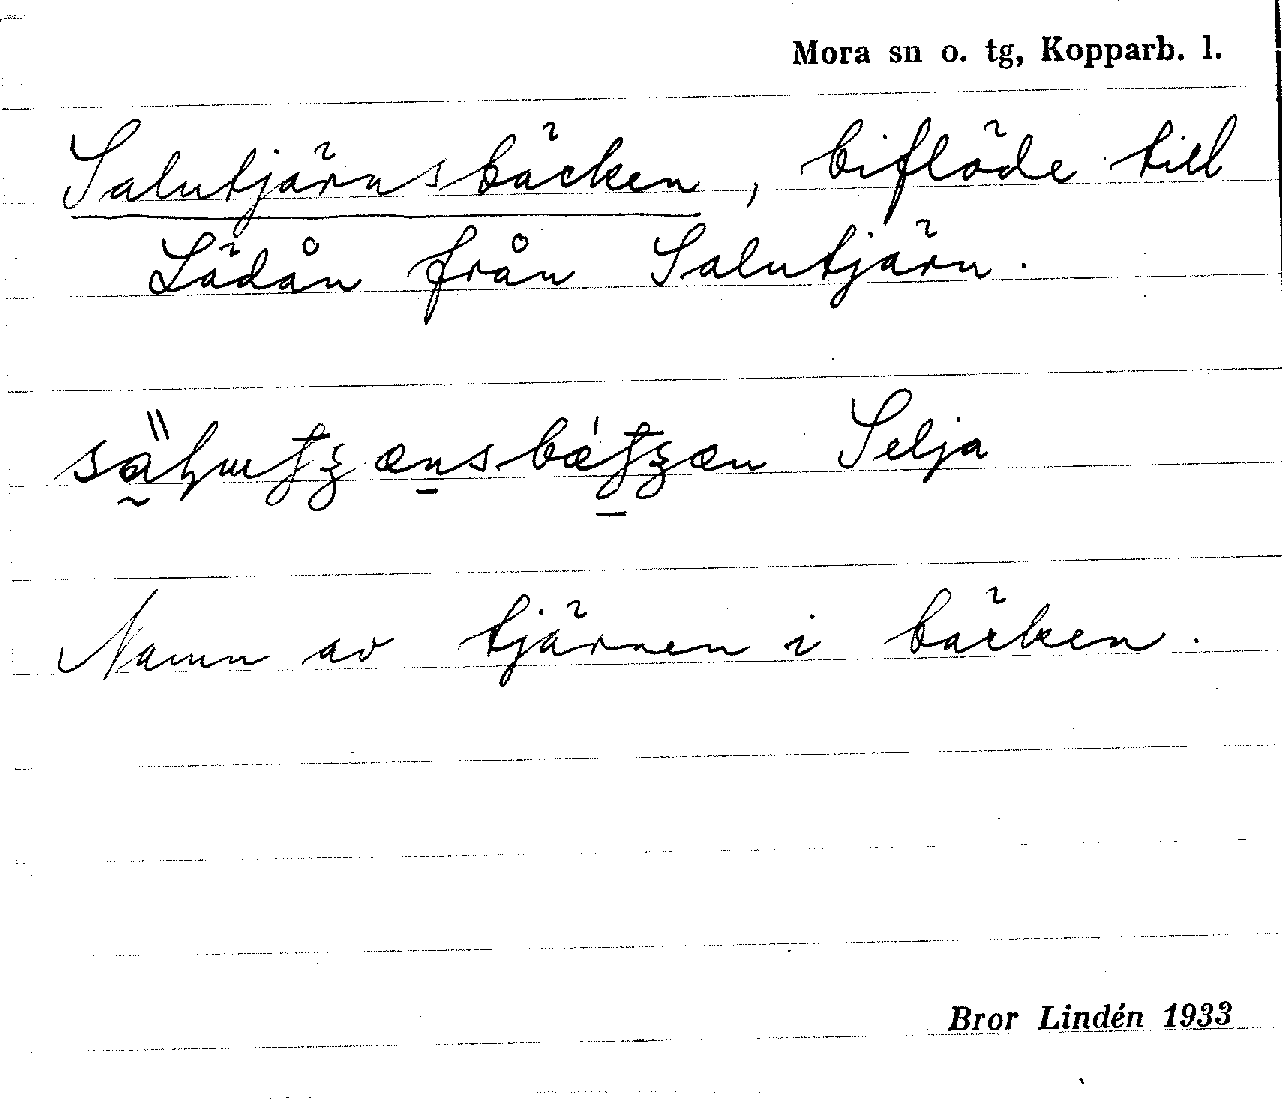 Mora sn o. tg, Kopparb. l.
Salutjärnsbäcken, biflöde till
Lädån från Salutjärn.
Selja
Namn av tjärnen i bäcken.
Bror Lindén 1933